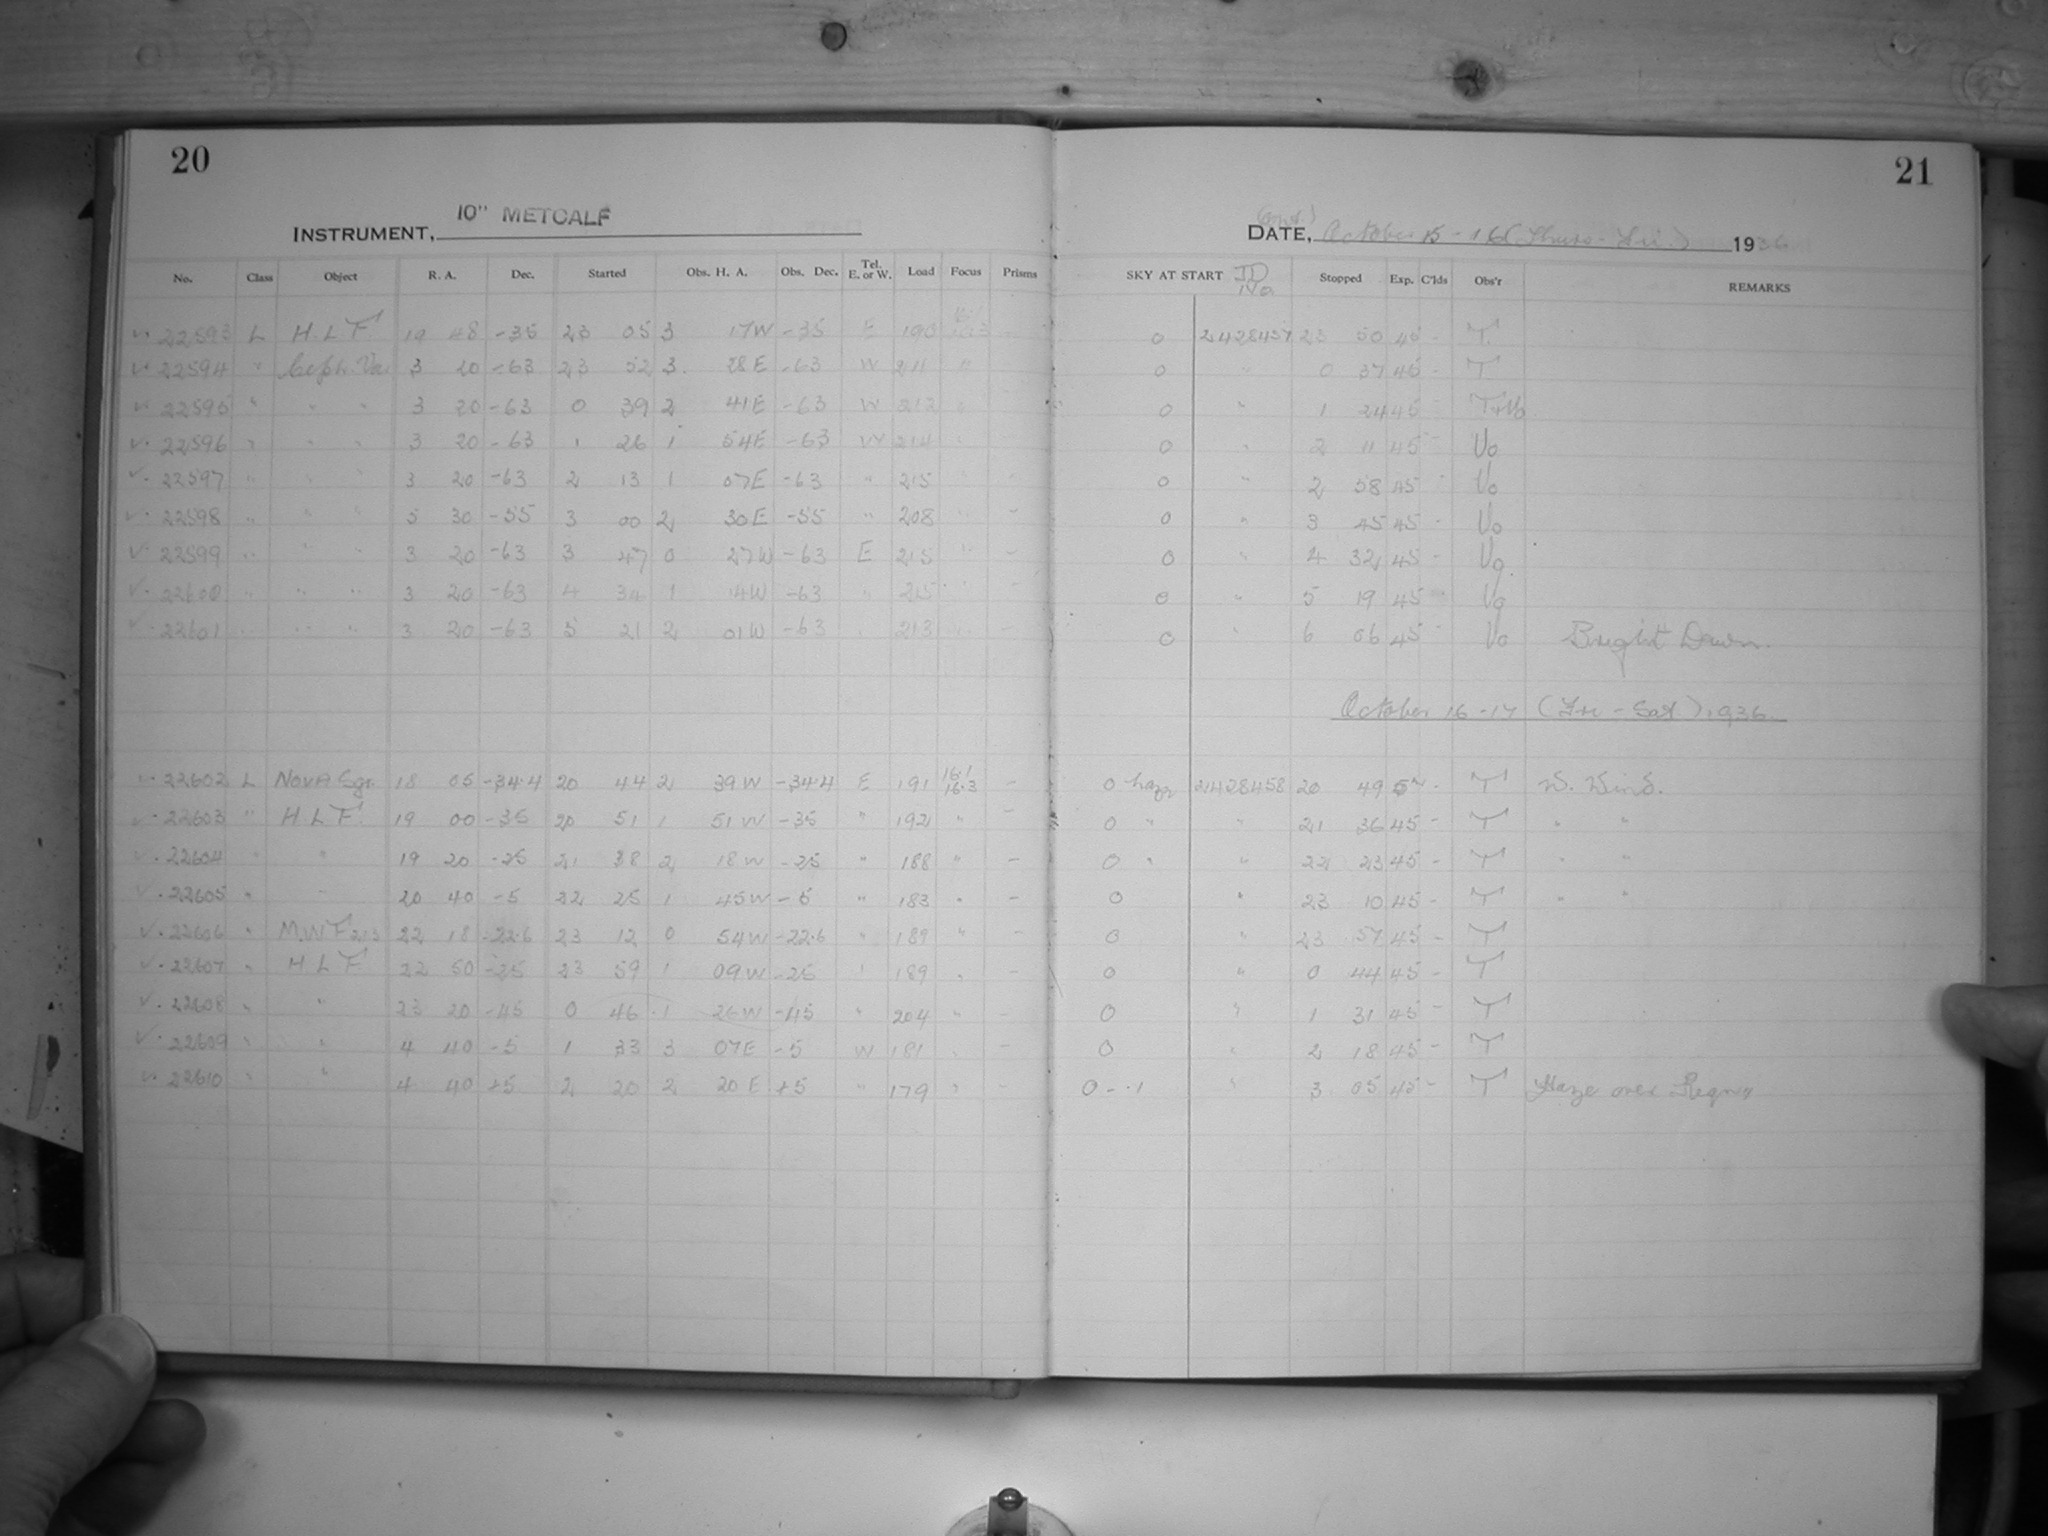 20
21
INSTRUMENT, 10" METCALF
(Cont.)
DATE, October 15-16 (Thurs-Fri.) 1936
No. Class Object R. A. Dec. Started Obs. H. A. Obs. Dec. Tel. E. or W. Load Focus Prisms SKY AT START JD Stopped Exp. C'lds Obs'r REMARKS
22593 L H. L F. 19 48 -35 23 05 3 17W -35 E 190 0 2428457 23 50 45 - T.
22594 " Ceph. Var. 3 20 -63 23 52 3 28E -63 W 211 " 0 " 0 37 45 - T
22595 " " " 3 20 -63 0 39 2 41E -63 W 212 0 " 1 24 45
22596 " " " 3 20 -63 1 26 1 54E -63 W 214 0 " 2 11 45 - Vo
22597 " " " 3 20 -63 2 13 1 07E -63 " 215 " - 0 " 2 58 45 - Vo
22598 " " " 5 30 -55 3 00 2 30E -55 " 208 " - 0 " 3 45 45 - Vo
22599 " " " 3 20 -63 3 47 0 27W -63 E 215 " - 0 " 4 32 45 - Vo.
22600 " " " 3 20 -63 4 34 1 14W -63 " 215 " - 0 " 5 19 45 " Vo
22601 " " " 3 20 -63 5 21 2 01W -63 " 213 " - 0 " 6 06 45 - Vo Bright Dawn.
October 16-17 (Fri-Sat) 1936
22602 L Nova Sgr. 18 05 -34.4 20 44 2 39W -34.4 E 191 16.1 16.3 - 0 hazy 2428458 20 49 5m - T W. Wind.
22603 " H L F. 19 00 -35 20 51 1 51W -35 " 192 " 0 " " 21 36 45 - T " "
22604 " " 19 20 -25 21 38 2 18W -25 " 188 " - 0 " " 22 23 45 - T " "
22605 " " 20 40 -5 22 25 1 45W -5 " 183 " - 0 " 23 10 45 - T " "
22606 " M.W F 213 22 18 -22.6 23 12 0 54W -22.6 " 189 " - 0 " 23 57 45 - T
22607 " H L F 22 50 -25 23 59 1 09W -25 " 189 " - 0 " 0 44 45 - T
22608 " " 23 20 -45 0 46 1 26W -45 " 204 " - 0 " 1 31 45 - T
22609 " " 4 40 -5 1 33 3 07E -5 W 181 " - 0 " 2 18 45 - T
22610 " " 4 40 +5 2 20 2 20E +5 " 179 " - 0-.1 " 3 05 45 - T Haze over Region